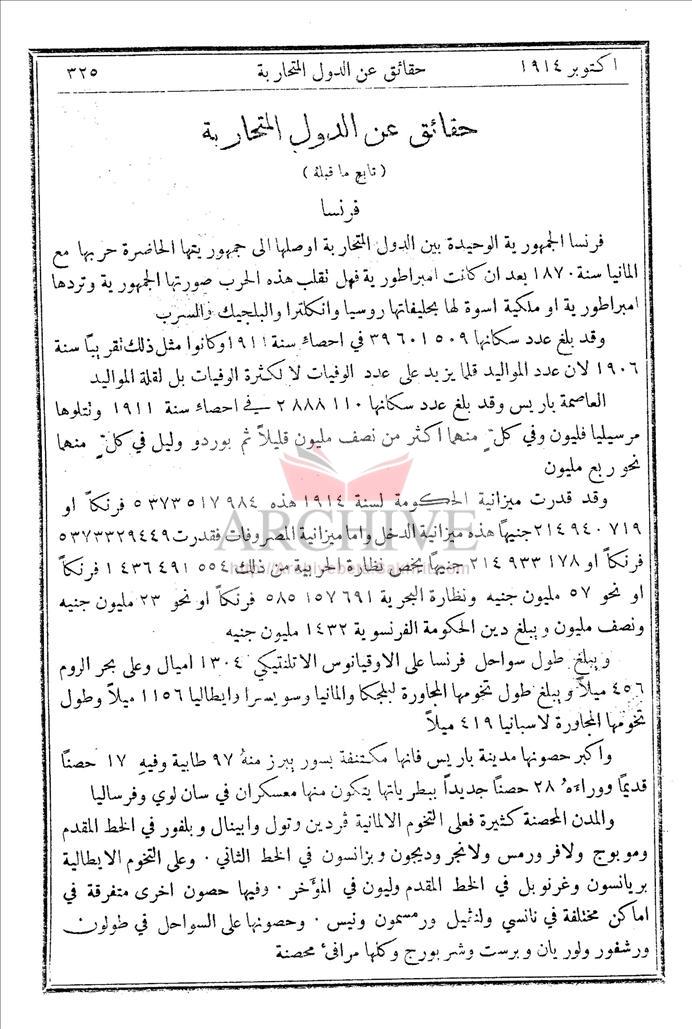 اكتوبر ١٩١٤
حقائق عن الدول المتحاربة
٣٢٥
حقائق عن الدول المتحاربة
( تابع ما قبلهُ )
فرنسا
فرنسا الجمهورية الوحيدة بين الدول المتحاربة اوصلها الى جمهوريتها الحاضرة حربها مع
المانيا سنة ١٨٧٠ بعد ان كانت امبراطورية فهل نقلب هذه الحرب صورتها الجمهورية وتردها
امبراطورية او ملكية اسوة لها بحليفاتها روسيا وانكلترا والبلجيك والسرب
وقد بلغ عدد سكانها ٣٩٦٠١٥٠٩ في احصاء سنة ١٩١١ وكانوا مثل ذلك نقريبًا سنة
١٩٠٦ لان عدد المواليد قلما يزيد على عدد الوفيات لا لكثرة الوفيات بل لقلة المواليد
العاصمة باريس وقد بلغ عدد سكانها ٢٨٨٨١١٠ في احصاء سنة ١٩١١ ونتلوها
مرسيليا فليون وفي كلّ منهما اكثر من نصف مليون قليلاً ثم بوردو وليل في كلّ منهما
نحو ربع مليون
وقد قدرت ميزانية الحكومة لسنة ١٩١٤ هذه ٥٣٧٣٥١٧٩٨٤ فرنكاً او
٢١٤٩٤٠٧١٩ جنيهاً هذه ميزانية الدخل واما ميزانية المصروفات فقدرت ٥٣٧٣٣٢٩٤٤٩
فرنكاً او ٢١٤٩٣٣١٧٨ جنيهاً يخص نظارة الحربية من ذلك ١٤٣٦٤٩١٥٥٤ فرنكاً
او نحو ٥٧ مليون جنيه ونظارة البحرية ٥٨٥١٥٧٦٩١ فرنكاً او نحو ٢٣ مليون جنيه
ونصف مليون ويبلغ دين الحكومة الفرنسوية ١٤٣٢ مليون جنيه
ويبلغ طول سواحل فرنسا على الاوقيانوس الاتلنتيكي ١٣٠٤ اميال وعلى بحر الروم
٤٥٦ ميلاً ويبلغ طول تخومها المجاورة لبلجكا والمانيا وسويسرا وايطاليا ١١٥٦ ميلاً وطول
تخومها المجاورة لاسبانيا ٤١٩ ميلاً
واكبر حصونها مدينة باريس فانها مكتنفة بسور يبرز منهُ ٩٧ طابية وفيهِ ١٧ حصنًا
قديمًا ووراءهُ ٢٨ حصنًا جديداً ببطرياتها يتكون منها معسكران في سان لوي وفرساليا
والمدن المحصنة كثيرة فعلى التخوم الالمانية فردين وتول وابينال وبلفور في الخط المقدم
وموبوج ولافر ورمس ولانجر وديجون وبزانسون في الخط الثاني . وعلى التخوم الايطالية
بريانسون وغرنوبل في الخط المقدم وليون في المؤخر . وفيها حصون اخرى متفرقة في
اماكن مختلفة في نانسي ولنثيل ورمسمون ونيس . وحصونها على السواحل في طولون
ورشفور ولوريان وبرست وشربورج وكلها مرافئ محصنة
ARCHIVE